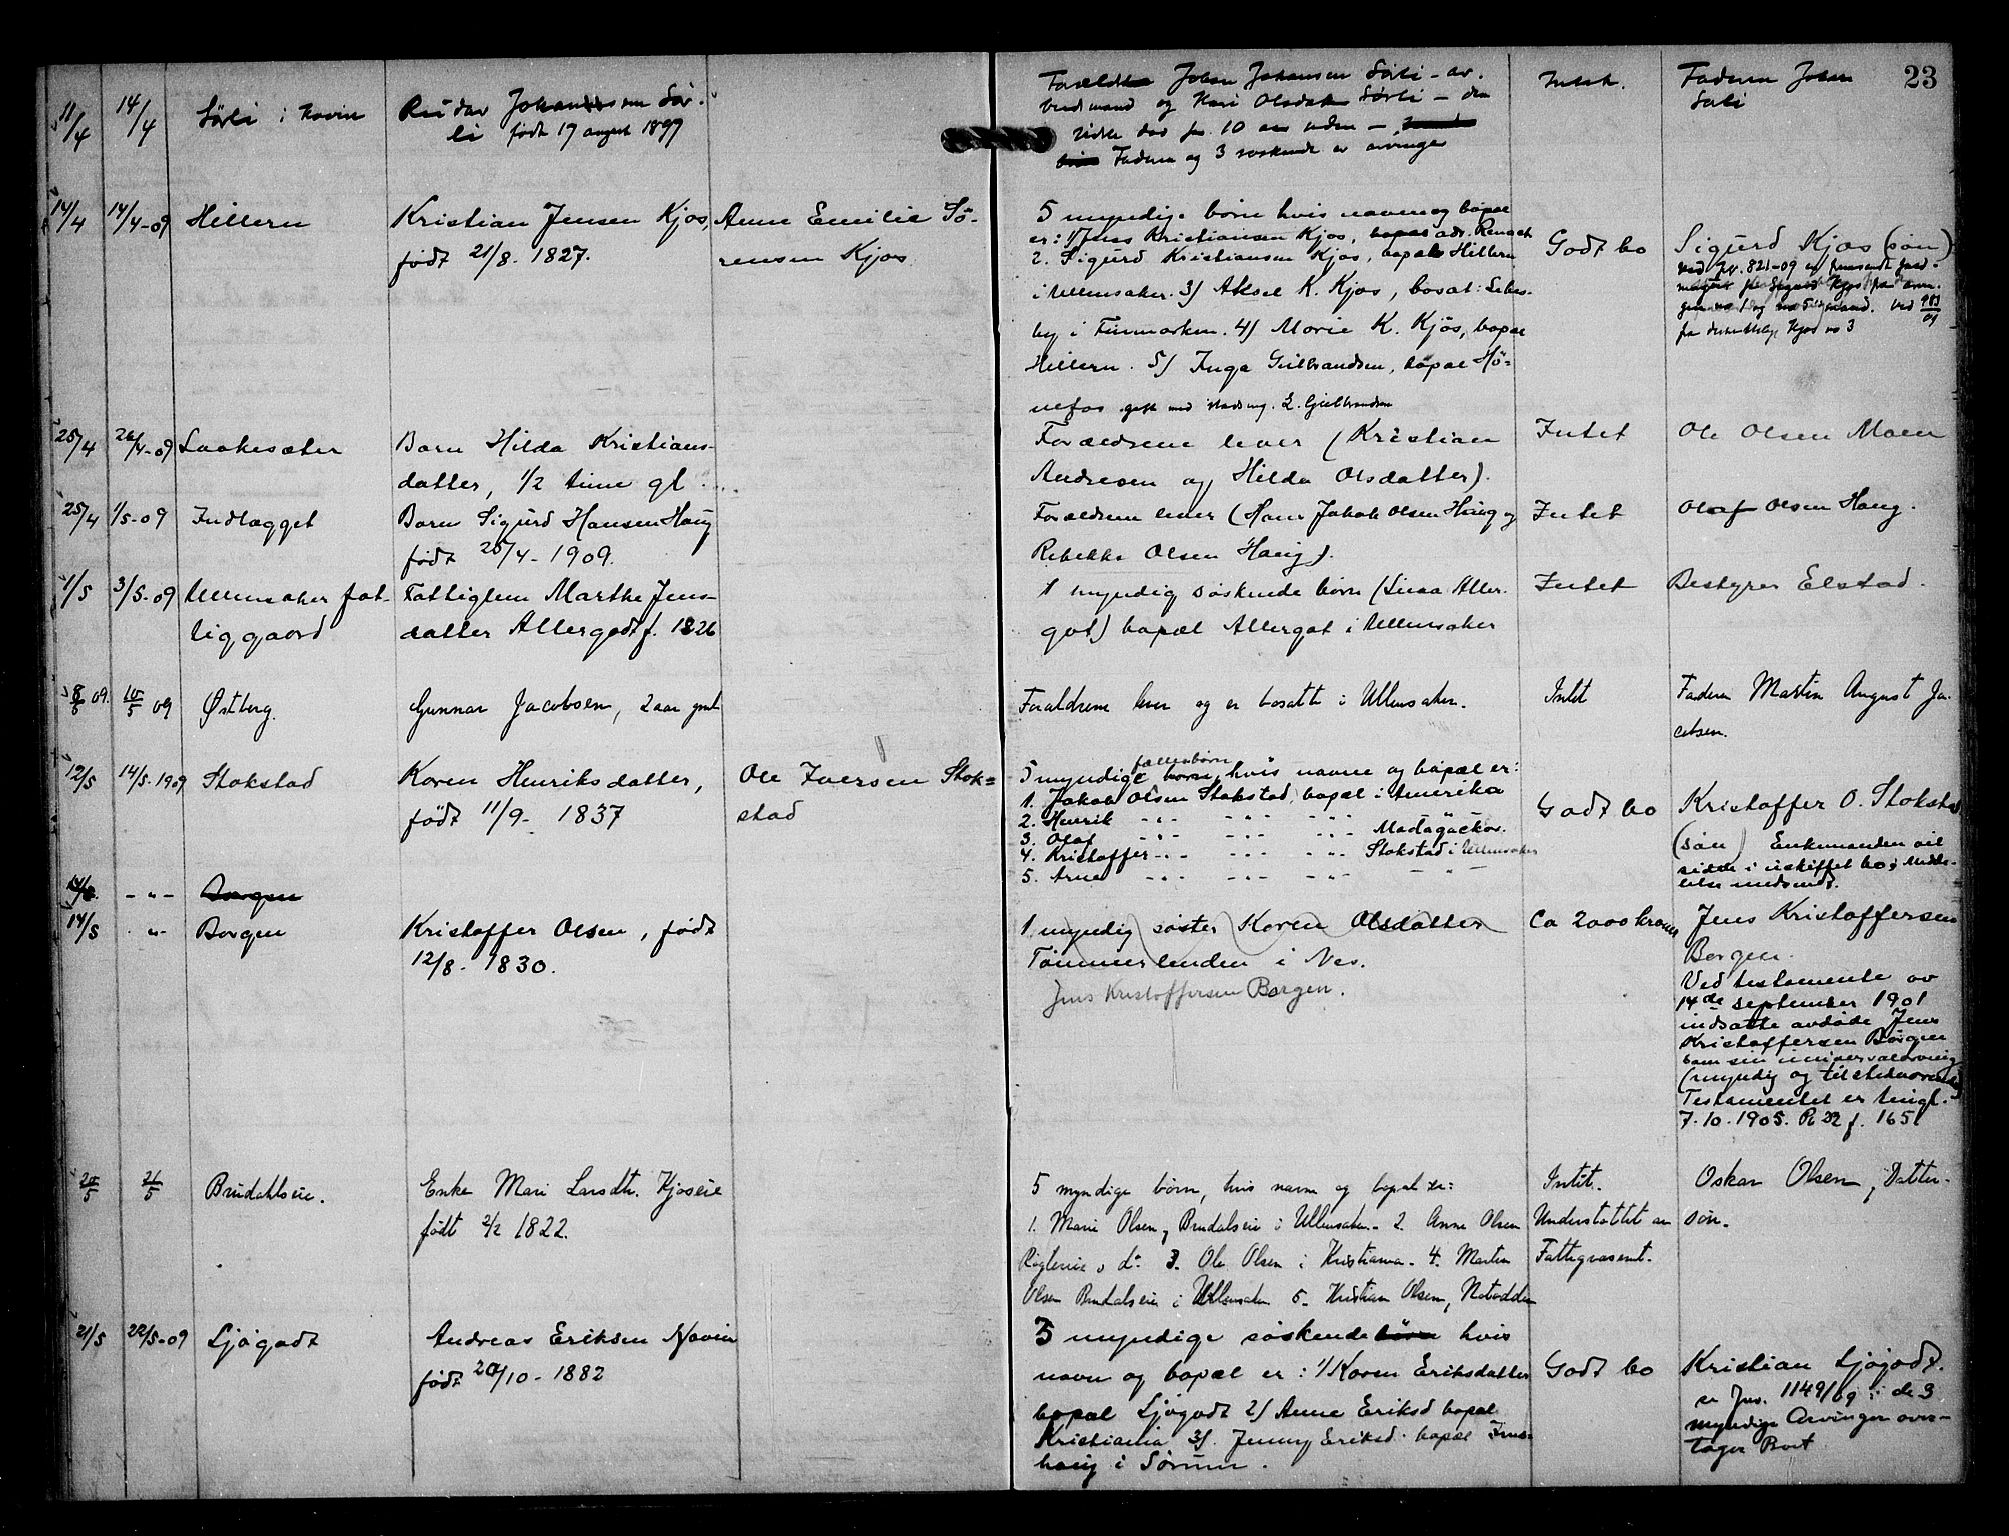 23
11/4
14/4
Sörli i Hovin
Rudav Johansen Sör-
li født 17 august 1899
Forældre Johan Johansen Sörli - ar-
beidsmand og Kari Olsdat Sörli - den
sidste död for 10 aar siden -
Faderen og 3 söskende er arvinger
Intet.
Faderen Johan
Sörli
14/4
14/4-09
Hillern
Kristian Jensen Kjos,
født 21/8. 1827.
Anne Emilie Sö-
rensen Kjos
5 myndige børn hvis navne og bopæl
er: 1/ Jens Kristiansen Kjos, bopæl adr. Rena st
2. Sigurd Kristiansen Kjos, bopæl Hillern
i Ullensaker. 3/ Aksel K. Kjos, bosat: Lebes-
by i Finmarken. 4) Marie K. Kjös, bopæl
Hillern. 5/ Inga Gulbrandsen, bopæl Hö-
nefos gift med Gulbrandsen
Godt bo
Sigurd Kjos (søn)
ved jnr. 821-09 er fremsendt
fra
25/4
26/4-09
Laakesæter
Barn Hilda Kristians-
datter, 1/2 time gl.
Forældrene lever (Kristian
Andresen og Hilda Olsdatter).
Intet
Ole Olsen Moen
25/4
1/5-09
Indlægget
Barn Sigurd Hansen Haug
født 25/4-1909.
Forældrene lever (Hans Jakob Olsen Haug og
Rebekka Olsen Haug).
Intet
Olaf Olsen Haug.
1/5
3/5-09
Ullensaker fat-
tiggaard
Fattiglem Marthe Jens-
datter Allergodt f. 1826
1 myndig söskende børn (Linaa Aller-
got) bopæl Allergot i Ullensaker
Intet
Bestyrer Elstad.
8/5 09.
10/5 09
Østberg.
Gunnar Jacobsen, 2 aar gml
Forældrene lever og er bosatte i Ullensaker.
Intet
Faderen Martin August Ja-
cobsen.
12/5
14/5-1909
Stokstad
Karen Henriksdatter,
født 11/9. 1837
Ole Iversen Stok-
stad
fællesbørn
5 myndige børn, hvis navne og bopæl er:
1. Jakob Olsen Stokstad, bopæl i Amerika
2. Henrik -"- -"- -"-
3. Olaf -"- -"- -"- Madagaskar.
4. Kristoffer -"- -"- -"- Stokstad i Ullensaker
5. Arne -"- -"- -"- - " -
Godt bo
Kristoffer O. Stokstad
(søn) Enkemanden vil
sidde i uskiftet bo; Medde-
lelse nedsendt.
14/5.
- " -
Borgen
14/5
- " -
Borgen
Kristoffer Olsen, født
12/8. 1830.
1 myndig søster Karen Olsdatter
Tømmerlenden i Nes.
Jens Kristoffersen Borgen.
Ca 2000 kroner
Jens Kristoffersen
Borgen.
Ved testamente av
14de september 1901
indsatte avdøde Jens
Kristoffersen Borgen
som sin universalarving
(myndig og tilstedeværende)
Testamentet er tingl.
7.10.1905. P. 22 f. 165
20/5
21/5
Brudahlseie.
Enke Mari Larsdtr. Kjoseie
født 2/2 1822.
5 myndige børn, hvis navne og bopæl er:
1. Marie Olsen, Brudalseie i Ullensaker. 2. Anne Olsen
i do 3. Ole Olsen i Kristiania. 4. Martin
Olsen Brudalseie i Ullensaker 5. Kristian Olsen, Notodden
Intet.
Understøttet av
Fattigvæsenet.
Oskar Olsen, Datter-
søn.
21/5
22/5-09
Ljögodt
Andreas Eriksen Novin
født 20/10-1882
3 myndige söskende børn hvis
navn og bopæl er: 1/ Karen Eriksdatter
bopæl Ljögodt 2) Anne Eriksd bopæl
Kristiania 3). Jenny Eriksd. bopæl Ims-
haug i Sörum.
Godt bo
Kristian Ljögodt.
se Jnr. 1149/09 de 3
myndige Arvinger over-
tager Boet